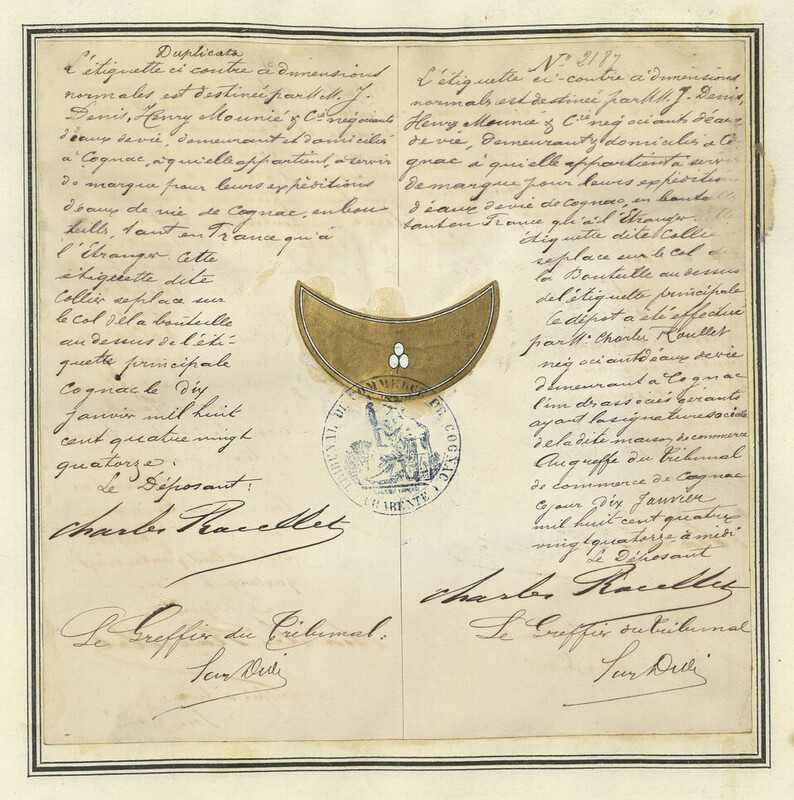 Duplicata
L'étiquette ci contre à dimensions
normales est destinée par M.M. J.
Denis, Henry Mounié & Cie négociants
d'eaux de vie, demeurant et domiciliés
à Cognac, à qui elle appartient, à servir
de marque pour leurs expéditions
d'eaux de vie de Cognac, en bou
teille, tant en France qu'à
l'Étranger. Cette
étiquette dite
Collier se place sur
le col de la bouteille
au dessus de l'éti
quette principale
Cognac le dix
Janvier mil huit
cent quatre vingt
quatorze.
Le Déposant:
Charles Roullet
Le Greffier du Tribunal:
No 2187
L'étiquette ci-contre à dimensions
normales est destinée par M.M. J. Denis,
Henry Mounié & Cie négociants d'eaux
de vie, demeurant & domiciliés à Co
gnac à qui elle appartient à servir
de marque pour leurs expéditions
d'eaux de vie de Cognac, en bouteille
tant en France qu'à l'Étranger.
étiquette dite Collier
se place sur le col de
la Bouteille au dessus
de l'étiquette principale
Le dépôt a été effectué
par Mr. Charles Roullet
négociant d'eaux de vie
demeurant à Cognac
l'un des associés gérants
ayant la signature sociale
de la dite maison de commerce
Au greffe du Tribunal
de commerce de Cognac
ce jour dix Janvier
mil huit cent quatre
vingt quatorze à midi
Le Déposant
Charles Roullet
Le Greffier du Tribunal
TRIBUNAL DE COMMERCE DE COGNAC
CHARENTE